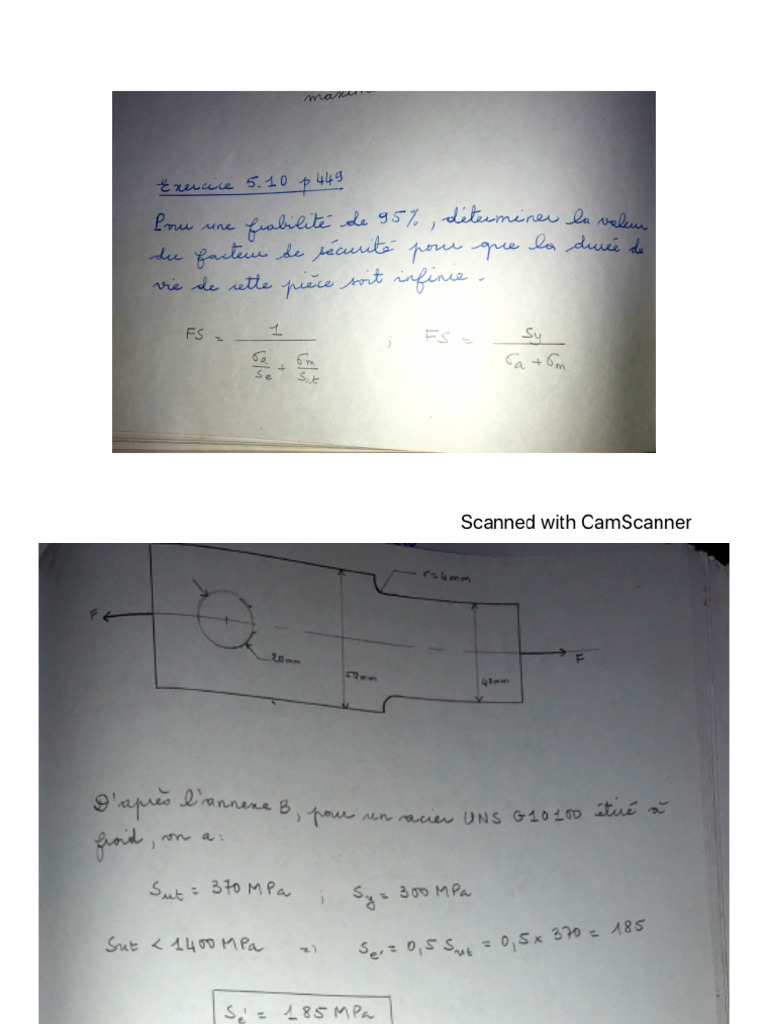 Exercice 5.10 p 449
Pour une fiabilité de 95%, déterminer la valeur
du facteur de sécurité pour que la durée de
vie de cette pièce soit infinie.
FS = 1 / (σa/Se + σm/Sut) ; FS = Sy / (σa + σm)
Scanned with CamScanner
r=4mm
F
20mm
50mm
40mm
F
D'après l'annexe B, pour un acier UNS G10100 étiré à
froid, on a:
Sut = 370 MPa ; Sy = 300 MPa
Sut < 1400 MPa => Se' = 0,5 Sut = 0,5 x 370 = 185
Se' = 185 MPa